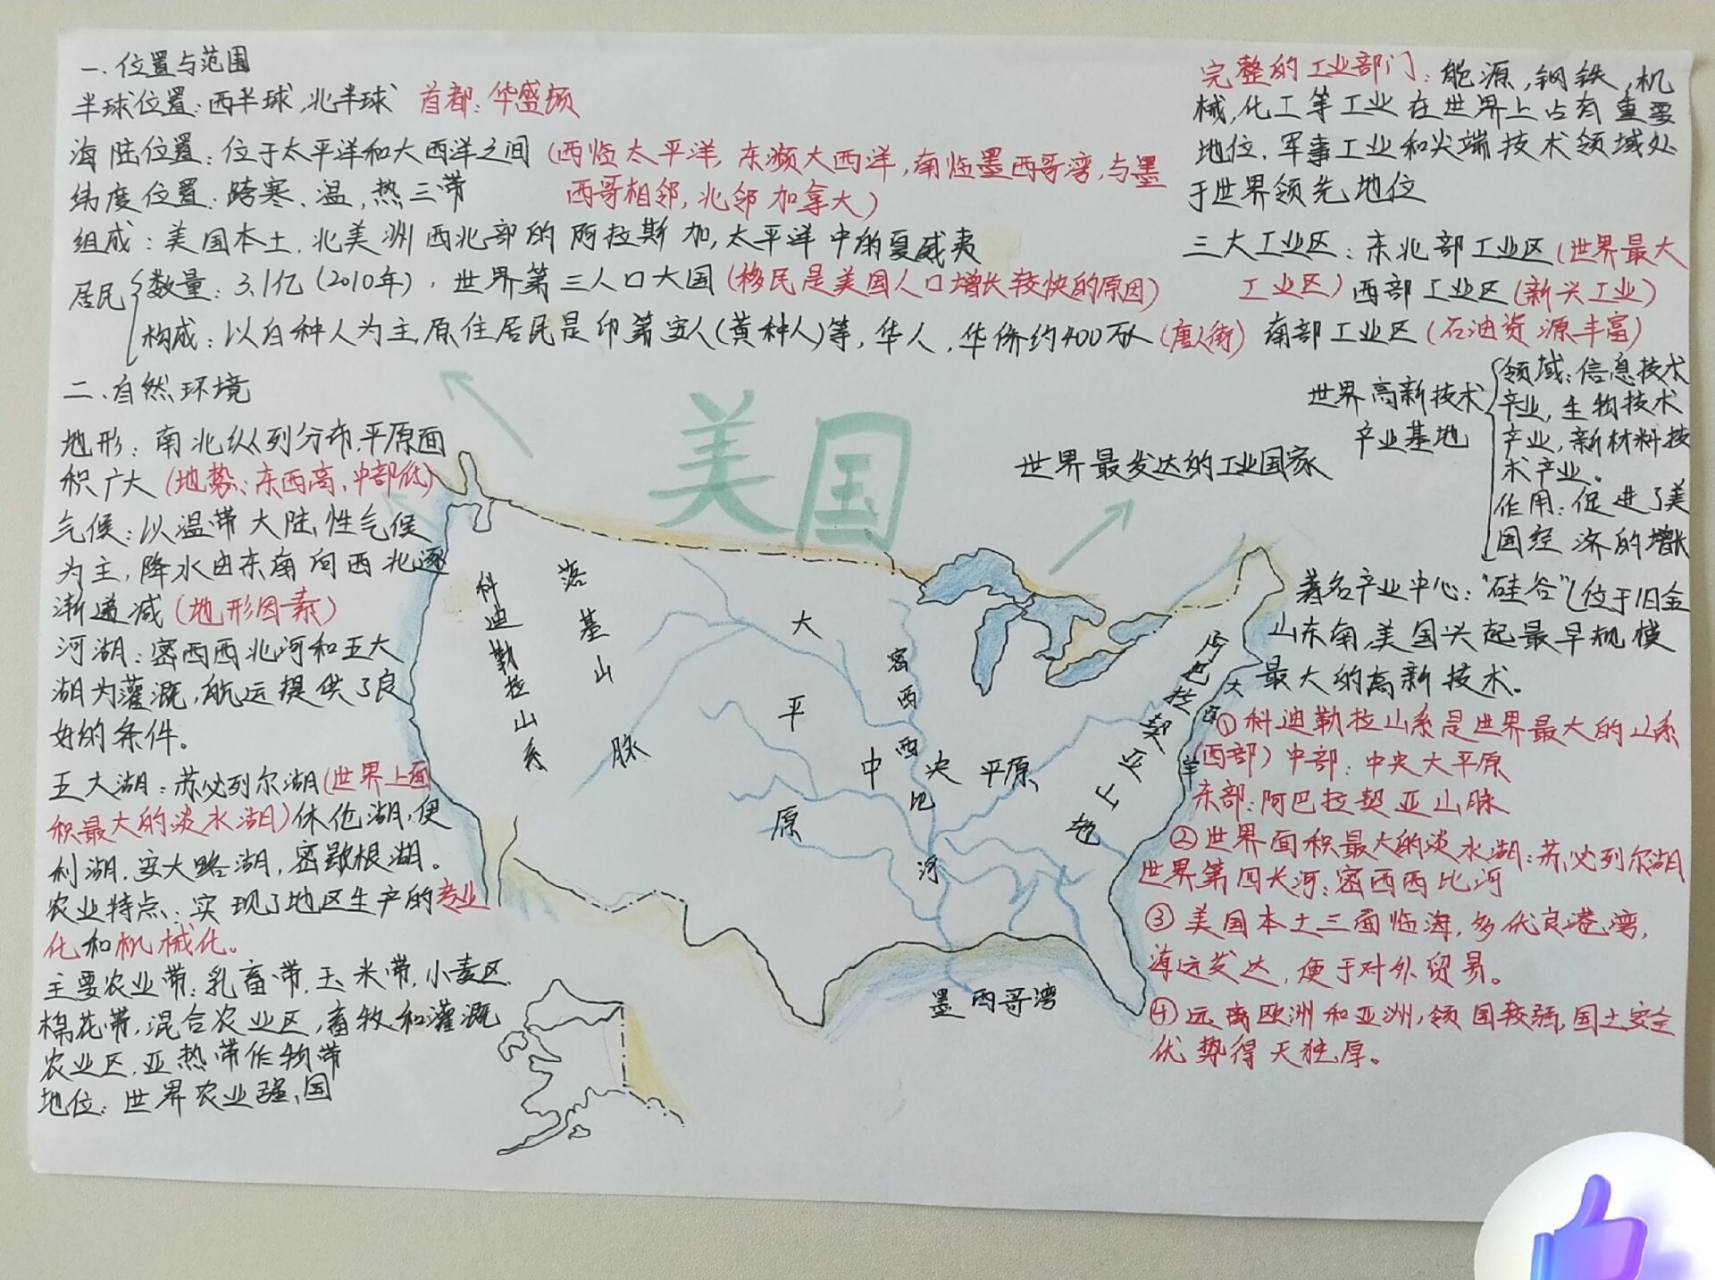 一.位置与范围
半球位置：西半球,北半球 首都：华盛顿
海陆位置：位于太平洋和大西洋之间(西临太平洋,东濒大西洋,南临墨西哥湾,与墨
西哥相邻,北邻加拿大)
纬度位置：跨寒、温,热三带
组成：美国本土,北美洲西北部的阿拉斯加,太平洋中的夏威夷
居民
数量：3.1亿(2010年),世界第三人口大国(移民是美国人口增长较快的原因)
构成：以白种人为主,原住居民是印第安人(黄种人)等,华人,华侨约400万人(唐人街)
二.自然环境
地形：南北纵列分布,平原面
积广大(地势：东西高,中部低)
气候：以温带大陆性气候
为主,降水由东南向西北逐
渐递减(地形因素)
河湖：密西西北河和五大
湖为灌溉,航运提供了良
好的条件。
五大湖：苏必列尔湖(世界上面
积最大的淡水湖)休伦湖,伊
利湖,安大略湖,密歇根湖。
农业特点：实现了地区生产的专业
化和机械化。
主要农业带：乳畜带,玉米带,小麦区,
棉花带,混合农业区,畜牧和灌溉
农业区,亚热带作物带
地位：世界农业强国
美国
科迪勒拉山系
落基山脉
大平原
密西西比河
中央平原
阿巴拉契亚山脉
大西洋
墨西哥湾
完整的工业部门：能源,钢铁,机
械,化工等工业在世界上占有重要
地位,军事工业和尖端技术领域处
于世界领先地位
三大工业区：东北部工业区(世界最大
工业区)西部工业区(新兴工业)
南部工业区(石油资源丰富)
世界最发达的工业国家
世界高新技术
产业基地
领域：信息技术
产业,生物技术
产业,新材料技
术产业。
作用：促进了美
国经济的增长
著名产业中心：“硅谷”(位于旧金
山东南,美国兴起最早规模
最大的高新技术。
①科迪勒拉山系是世界最大的山系
(西部)中部：中央大平原
东部：阿巴拉契亚山脉
②世界面积最大的淡水湖：苏必列尔湖
世界第四长河：密西西比河
③美国本土三面临海,多优良港湾,
海运发达,便于对外贸易。
④远离欧洲和亚洲,领国较弱,国土安全
优势得天独厚。